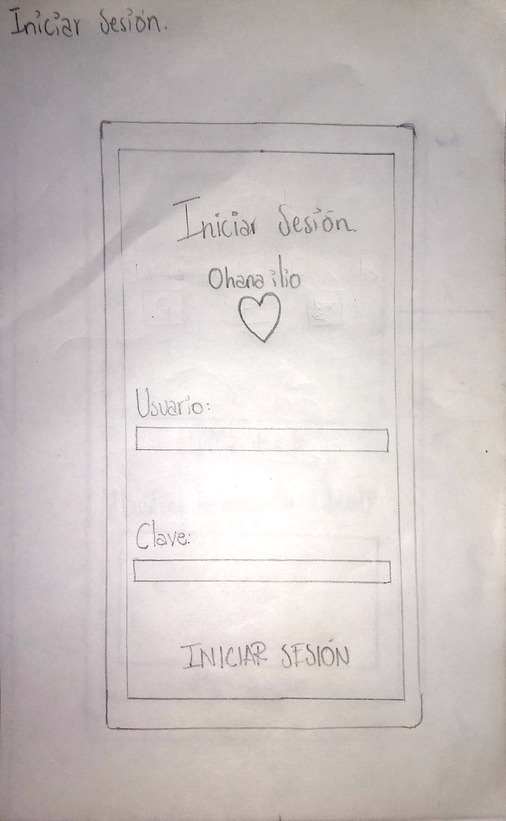 Iniciar Sesión.
Iniciar Sesión.
Ohana ilio
Usuario:
Clave:
INICIAR SESIÓN